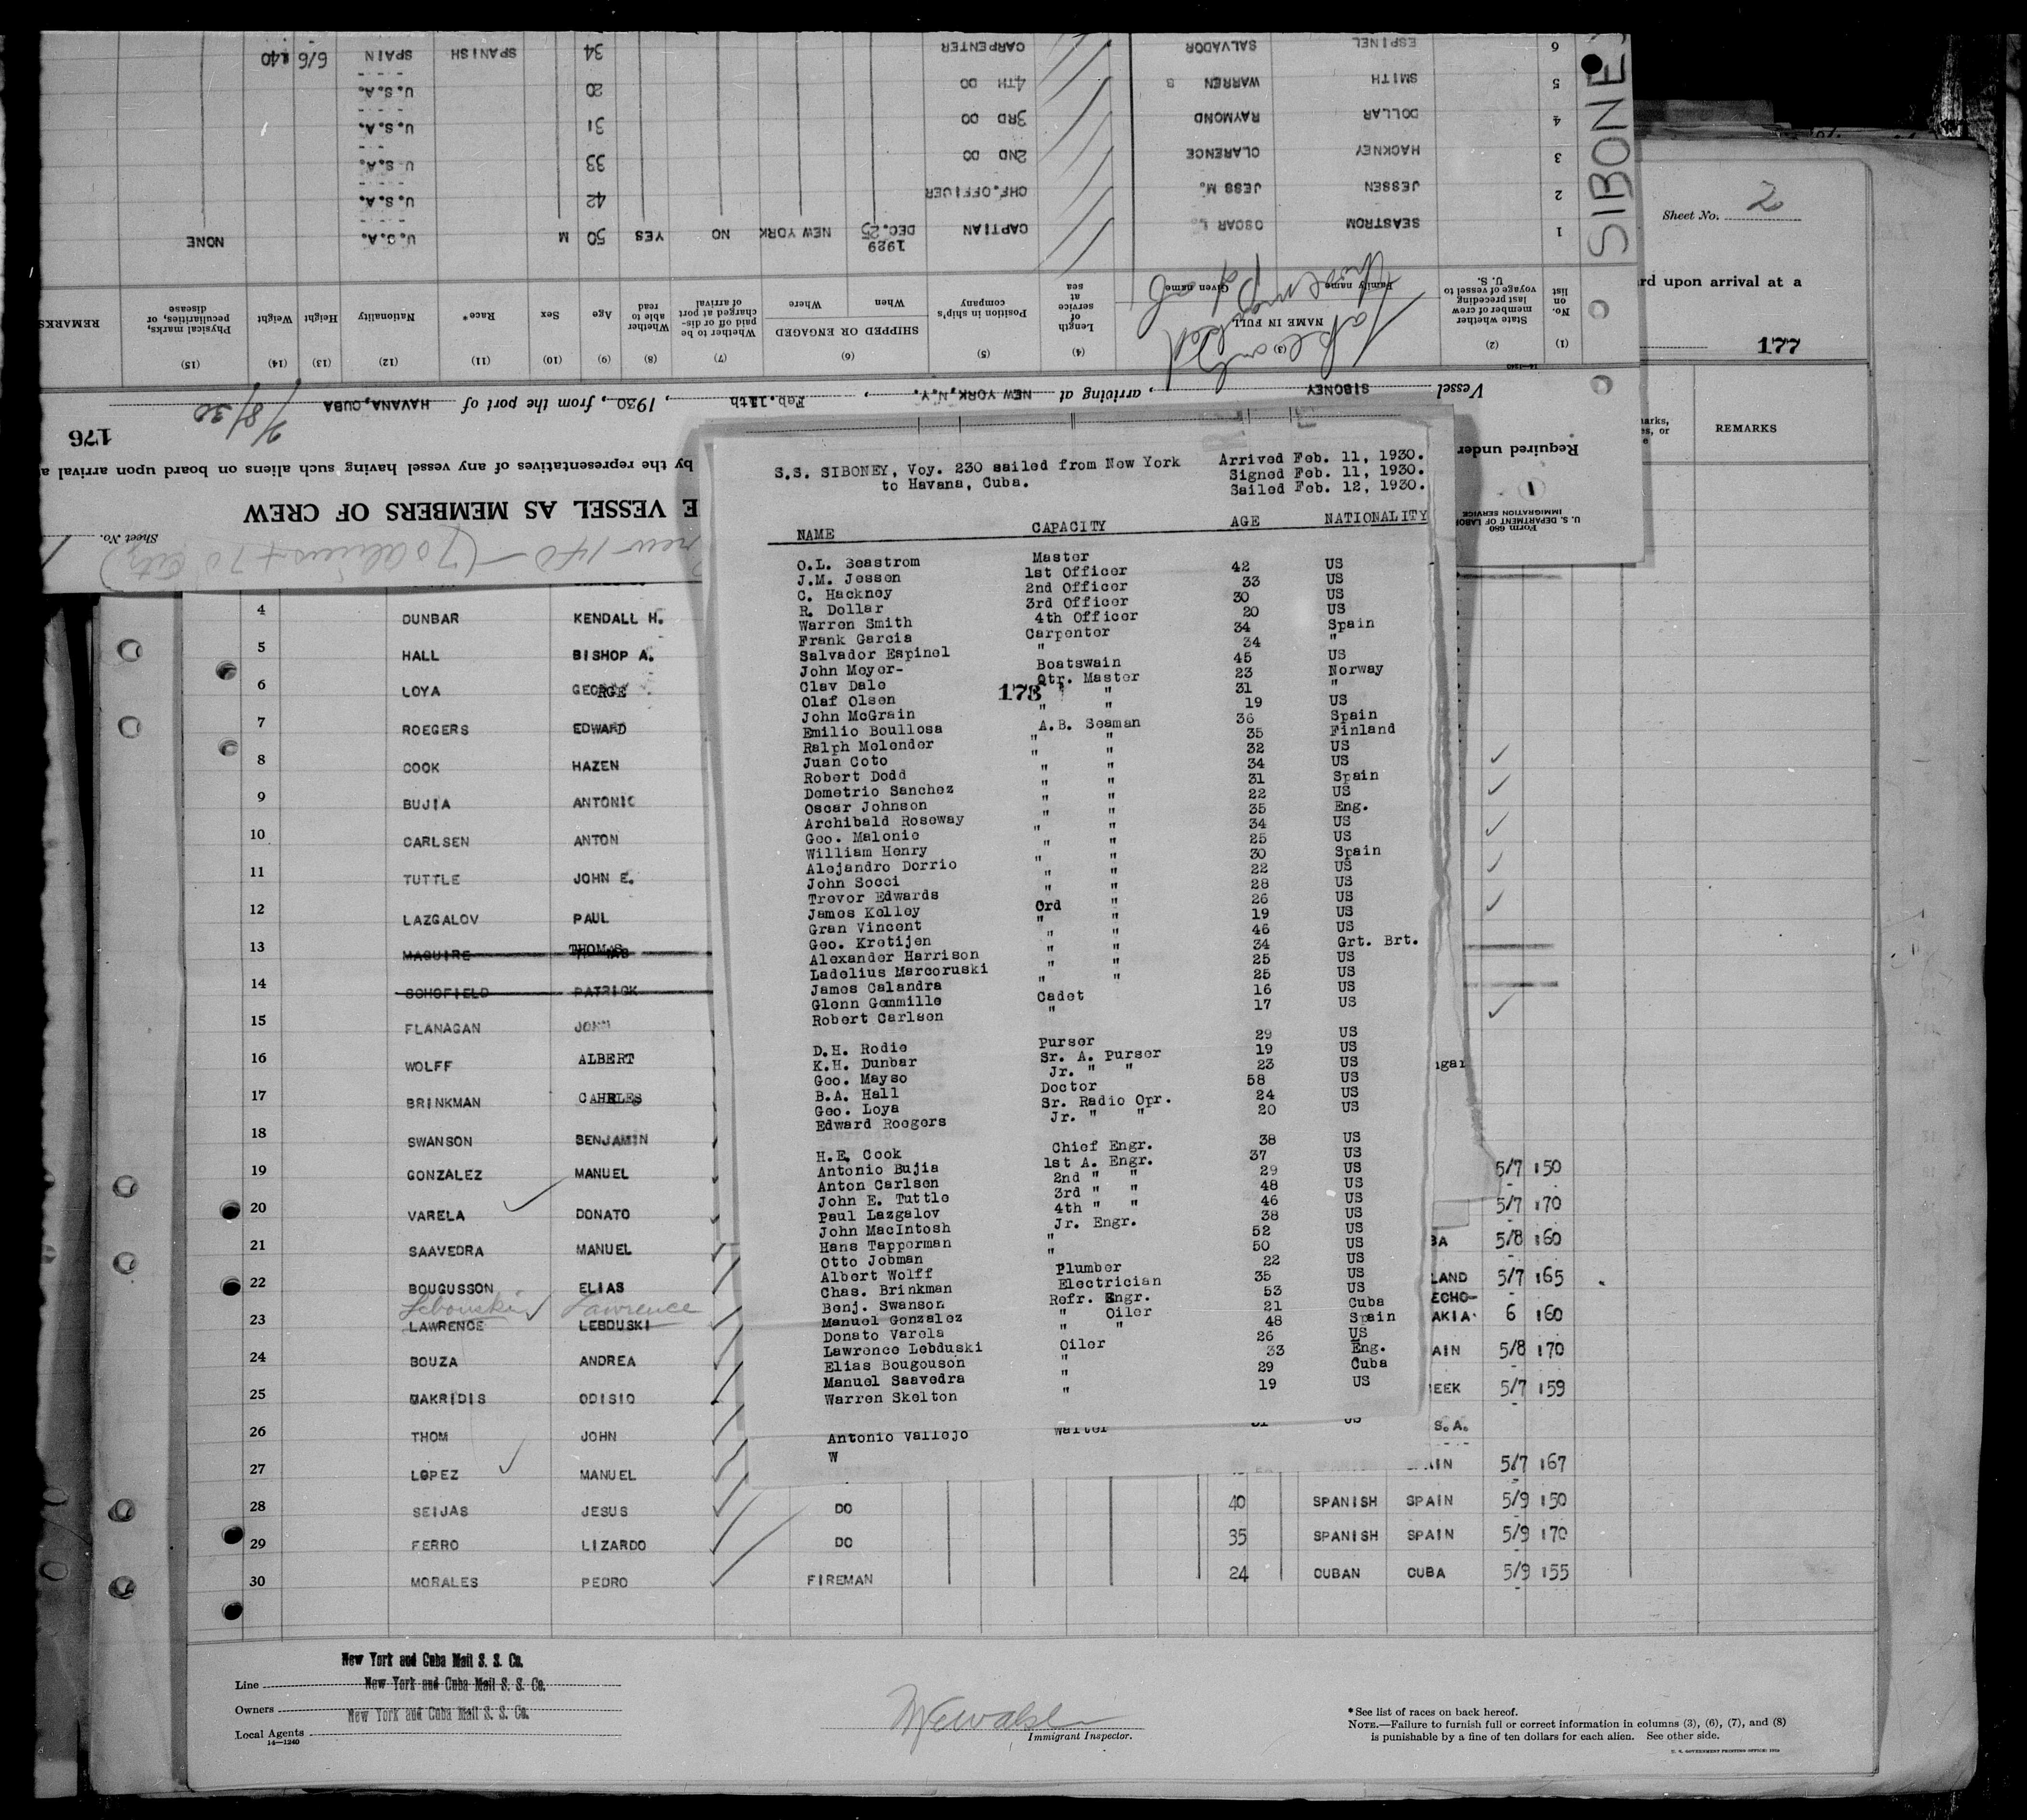 SIBONEY
Form 680
U. S. DEPARTMENT OF LABOR
IMMIGRATION SERVICE
1
Required under
Sheet No. 1
E VESSEL AS MEMBERS OF CREW
by the representatives of any vessel having such aliens on board upon arrival a
176
Vessel SIBONEY, arriving at NEW YORK, N.Y., Feb. 11th, 1930, from the port of HAVANA, CUBA
14—1240
(1) (2) (3) (4) (5) (6) (7) (8) (9) (10) (11) (12) (13) (14) (15)
No. on list
State whether member of crew last preceding voyage of vessel to U. S.
NAME IN FULL
Family name Given name
Length of service at sea
Position in ship's company
SHIPPED OR ENGAGED
When Where
Whether to be paid off or discharged at port of arrival
Whether able to read
Age
Sex
Race*
Nationality
Height
Weight
Physical marks, peculiarities, or disease
REMARKS
1 SEASTROM OSCAR L. CAPTIAN 1929 DEC.25 NEW YORK NO YES 50 M U.S.A. NONE
2 JESSEN JESS M. CHF.OFFICER 42 U.S.A.
3 HACKNEY CLARENCE 2ND DO 33 U.S.A.
4 DOLLAR RAYMOND 3RD DO 31 U.S.A.
5 SMITH WARREN B 4TH DO 20 U.S.A.
6 ESPINEL SALVADOR CARPENTER 34 SPANISH SPAIN 6/6 140
Sheet No. 2
rd upon arrival at a
177
REMARKS
S.S. SIBONEY, Voy. 230 sailed from New York Arrived Feb. 11, 1930.
to Havana, Cuba. Signed Feb. 11, 1930.
Sailed Feb. 12, 1930.
NAME CAPACITY AGE NATIONALITY
O.L. Seastrom Master
J.M. Jessen 1st Officer 42 US
C. Hackney 2nd Officer 33 US
R. Dollar 3rd Officer 30 US
Warren Smith 4th Officer 20 US
Frank Garcia Carpenter 34 Spain
Salvador Espinel " 34 "
John Meyer- Boatswain 45 US
Clav Dale Qtr. Master 23 Norway
173
Olaf Olsen " " 31 "
John McGrain " " 19 US
Emilio Boullosa A.B. Seaman 36 Spain
Ralph Melender " " 35 Finland
Juan Coto " " 32 US
Robert Dodd " " 34 US
Demetrio Sanchez " " 31 Spain
Oscar Johnson " " 22 US
Archibald Roseway " " 35 Eng.
Geo. Malonie " " 34 US
William Henry " " 25 US
Alejandro Dorrio " " 30 Spain
John Socci " " 22 US
Trevor Edwards " " 28 US
James Kelley Ord " 26 US
Gran Vincent " " 19 US
Geo. Kretijen " " 46 US
Alexander Harrison " " 34 Grt. Brt.
Ladelius Marcoruski " " 25 US
James Calandra " " 25 US
Glenn Gemmille Cadet 16 US
Robert Carlsen " 17 US
D.H. Rodie Purser 29 US
K.H. Dunbar Sr. A. Purser 19 US
Geo. Mayso Jr. " " 23 US
B.A. Hall Doctor 58 US
Geo. Loya Sr. Radio Opr. 24 US
Edward Roegers Jr. " " 20 US
H.E. Cook Chief Engr. 38 US
Antonio Bujia 1st A. Engr. 37 US
Anton Carlsen 2nd " " 29 US
John E. Tuttle 3rd " " 48 US
Paul Lazgalov 4th " " 46 US
John MacIntosh Jr. Engr. 38 US
Hans Tapperman " 52 US
Otto Jobman " 50 US
Albert Wolff Plumber 22 US
Chas. Brinkman Electrician 35 US
Benj. Swanson Refr. Engr. 53 US
Manuel Gonzalez " Oiler 21 Cuba
Donato Varela " " 48 Spain
Lawrence Lebduski Oiler 26 US
Elias Bougouson " 33 Eng.
Manuel Saavedra " 29 Cuba
Warren Skelton " 19 US
Antonio Vallejo Waiter 31 US
W
4 DUNBAR KENDALL H.
5 HALL BISHOP A.
6 LOYA GEORGE
7 ROEGERS EDWARD
8 COOK HAZEN
9 BUJIA ANTONIO
10 CARLSEN ANTON
11 TUTTLE JOHN E.
12 LAZGALOV PAUL
13 MAGUIRE THOMAS
14 SCHOFIELD PATRICK
15 FLANAGAN JOHN
16 WOLFF ALBERT
17 BRINKMAN CAHRLES
18 SWANSON BENJAMIN
19 GONZALEZ MANUEL 5/7 150
20 VARELA DONATO 5/7 170
21 SAAVEDRA MANUEL BA 5/8 160
22 BOUGUSSON ELIAS LAND 5/7 165
Lebouski Lawrence
23 LAWRENCE LEBDUSKI ECHO-AKIA 6 160
24 BOUZA ANDREA AIN 5/8 170
25 MAKRIDIS ODISIO EEK 5/7 159
26 THOM JOHN S.A.
27 LOPEZ MANUEL AIN 5/7 167
28 SEIJAS JESUS DO 40 SPANISH SPAIN 5/9 150
29 FERRO LIZARDO DO 35 SPANISH SPAIN 5/9 170
30 MORALES PEDRO FIREMAN 24 CUBAN CUBA 5/9 155
New York and Cuba Mail S. S. Co.
Line New York and Cuba Mail S. S. Co.
Owners New York and Cuba Mail S. S. Co.
Local Agents
14—1240
Immigrant Inspector.
*See list of races on back hereof.
NOTE.—Failure to furnish full or correct information in columns (3), (6), (7), and (8)
is punishable by a fine of ten dollars for each alien. See other side.
U. S. GOVERNMENT PRINTING OFFICE: 1929